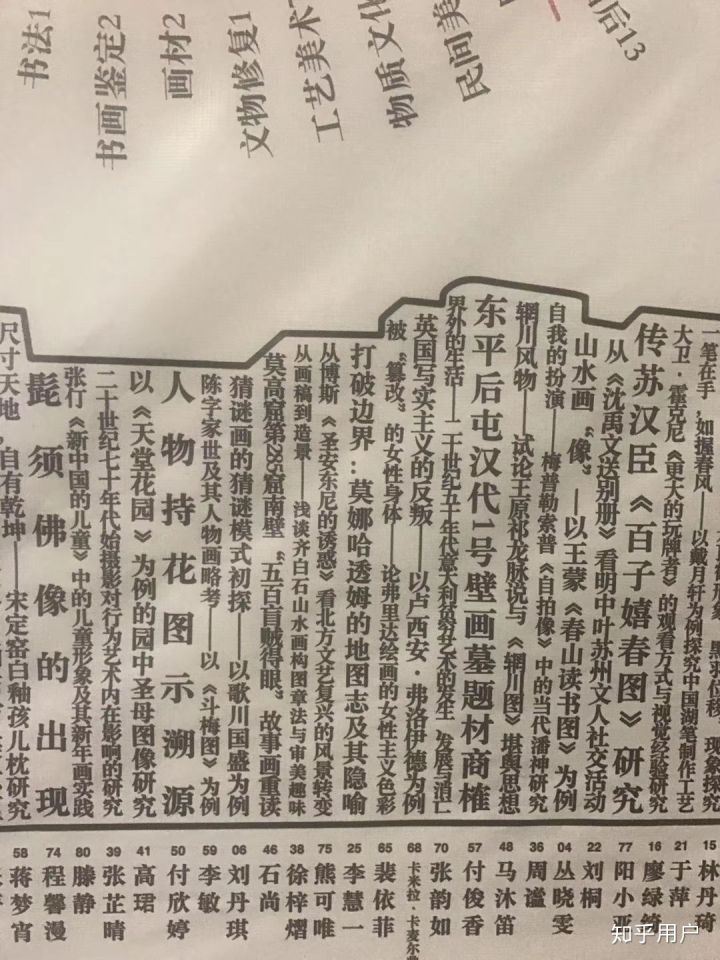 后13
民间美
物质文化
工艺美术
文物修复1
画材2
书画鉴定2
书法1
一笔在手，如握春风——以戴月轩为例探究中国湖笔制作工艺
大卫·霍克尼《更大的玩牌者》的观看方式与视觉经验研究
传苏汉臣《百子嬉春图》研究
从《沈禹文送别册》看明中叶苏州文人社交活动
山水画“像”——以王蒙《春山读书图》为例
自我的扮演——梅普勒索普《自拍像》中的当代潘神研究
辋川风物——试论王原祁龙脉说与《辋川图》堪舆思想
东平后屯汉代1号壁画墓题材商榷
界外的生活——二十世纪五十年代意大利贫穷艺术的发生、发展与消亡
英国写实主义的反叛——以卢西安·弗洛伊德为例
被“篡改”的女性身体——论弗里达绘画的女性主义色彩
打破边界：莫娜哈透姆的地图志及其隐喻
从博斯《圣安东尼的诱惑》看北方文艺复兴的风景转变
从画稿到造景——浅谈齐白石山水画构图章法与审美趣味
莫高窟第285窟南壁“五百盲贼得眼”故事画重读
猜谜画的猜谜模式初探——以歌川国盛为例
陈字家世及其人物画略考——以《斗梅图》为例
人物持花图示溯源
以《天堂花园》为例的园中圣母图像研究
二十世纪七十年代始摄影对行为艺术内在影响的研究
张仃《新中国的儿童》中的儿童形象及其新年画实践
髭须佛像的出现
尺寸天地，自有乾坤——宋定窑白釉孩儿枕研究
15 林丹琦
21 于萍
16 廖绿绮
77 阳小亚
22 刘桐
04 丛晓雯
36 周谧
48 马沐笛
57 付俊香
70 张韵如
68 卡米拉·卡麦尔
65 裴依菲
25 李慧一
75 熊可唯
38 徐梓熠
46 石尚
06 刘丹琪
59 李敏
50 付欣婷
41 高珺
39 张芷晴
80 滕静
74 程馨漫
58 蒋梦宵
知乎用户